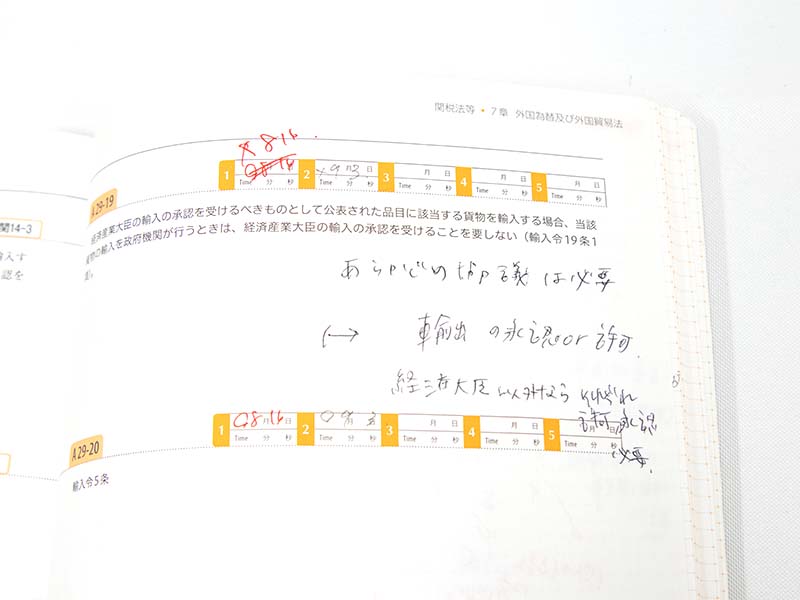 関税法等・7章 外国為替及び外国貿易法
× 8 16
1 08 16 Time 分 秒 2 × 9月3日 Time 分 秒 3 月 日 Time 分 秒 4 月 日 Time 分 秒 5 月 日 Time 分 秒
A 29-19
経済産業大臣の輸入の承認を受けるべきものとして公表された品目に該当する貨物を輸入する場合、当該
貨物の輸入を政府機関が行うときは、経済産業大臣の輸入の承認を受けることを要しない（輸入令19条1
問14-3
入す
認を
あらかじめ協議は必要
輸出の承認or許可
経済大臣以外なら
許可承認
必要
1 ○8月16日 Time 分 秒 2 ○9月3日 Time 分 秒 3 月 日 Time 分 秒 4 月 日 Time 分 秒 5 月 日 Time 分 秒
A 29-20
輸入令5条